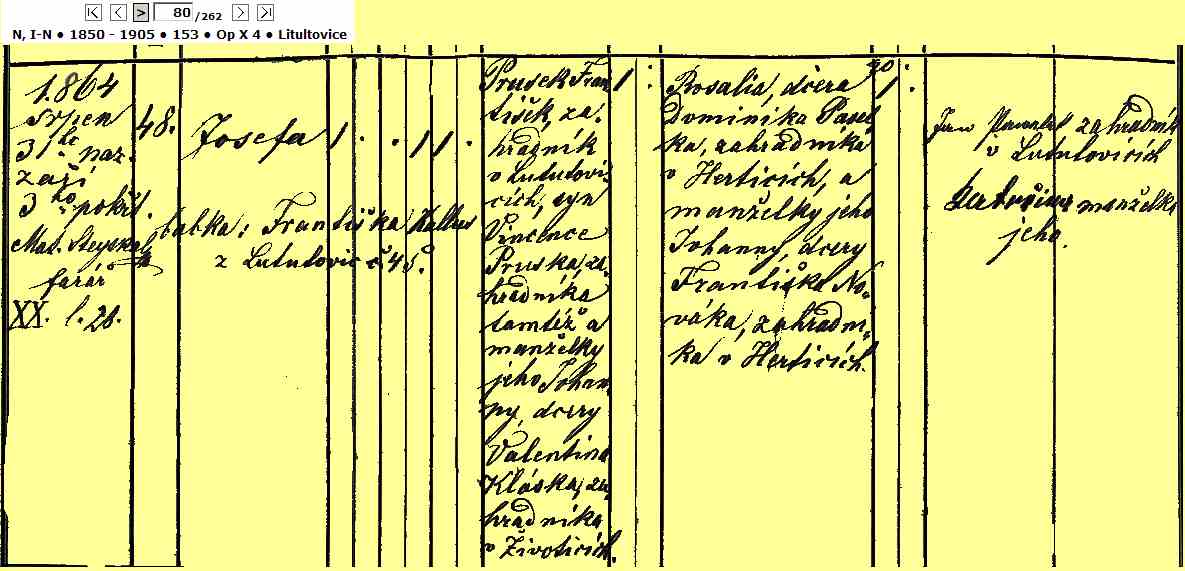 80 /262
N, I-N ● 1850 - 1905 ● 153 ● Op X 4 ● Litultovice
1864
srpen
31ho nar.
září
3ho pokřt.
Mat. Steyskal
farář
XX. l. 20.
48.
Josefa 1 . . 1 1 .
babka: Františka
z Lututovic č. 45.
Prusek Fran
tišek, za-
hradník
v Lututovi-
cích, syn
Vincence
Pruska, za-
hradníka
tamtéž a
manželky
jeho Johan-
ny, dcery
Valentina
Kláska, za-
hradníka
v Životicích.
1 :
Rosalia, dcera
Dominika Pavel
ka, zahradníka
v Herticích, a
manželky jeho
Johanny, dcery
Františka No-
váka, zahradní-
ka v Herticích.
90 :
1 .
Jan zahradník
v Lututovicích
manželka
jeho.